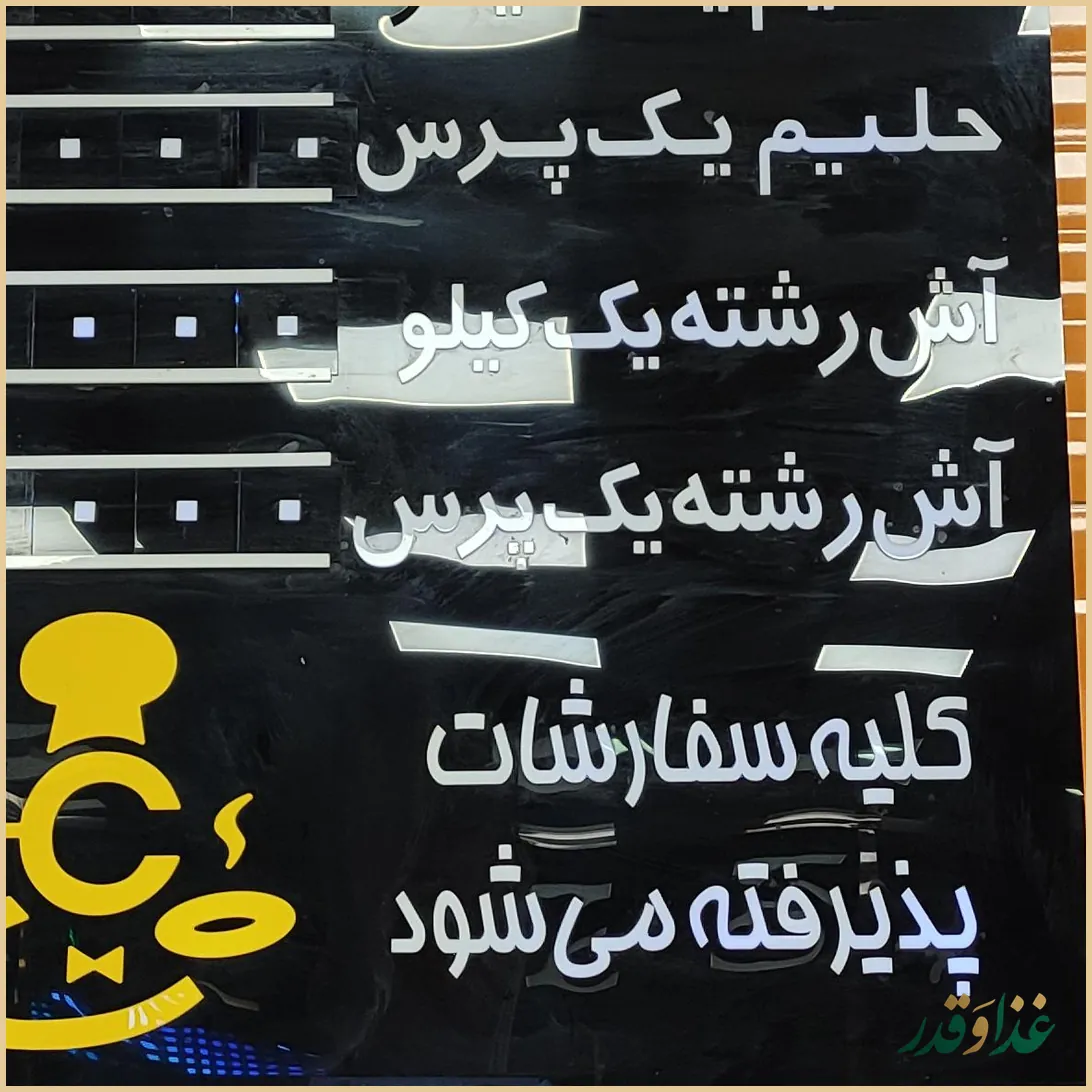 حلیم یک پرس
آش رشته یک کیلو
آش رشته یک پرس
کلیه سفارشات
پذیرفته می شود
غذا و قدر